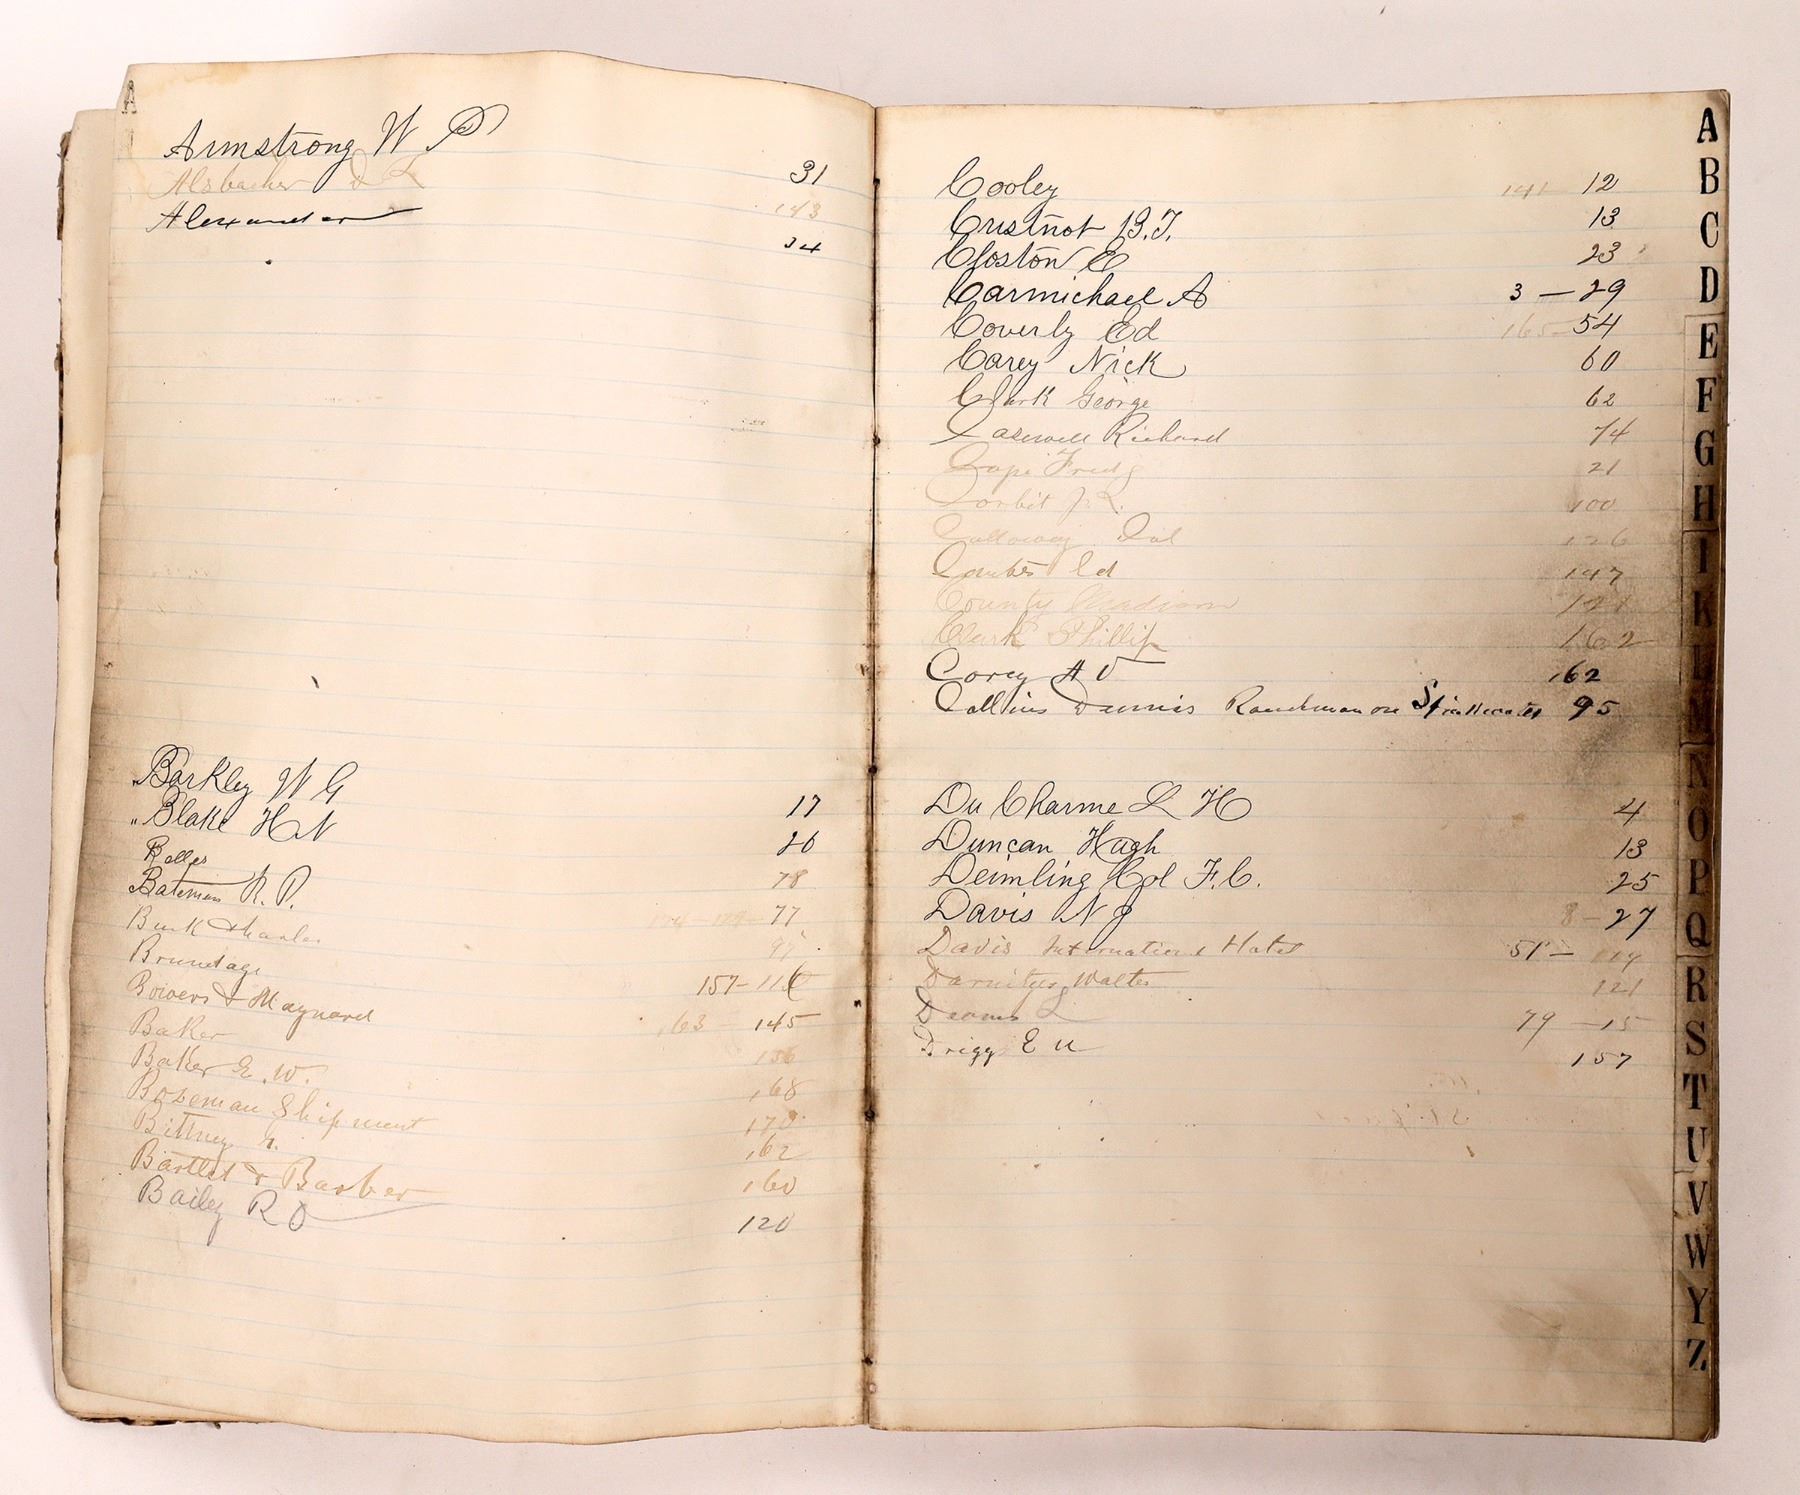 A
Armstrong W P 31
Alsbacher D L 143
Alexander 34
Barkley W G 17
" Blake H N 20
Bolles 78
Bateman R. P. 77
Burk Charles 97
Brundage 157-116
Bowers & Maynard 163 - 145
Baker 156
Baker G. W. 168
Bozeman Shipment 170
Bittney G. 162
Bartlet & Barber 160
Bailey R O 120
Cooley 141 12
Custnot B. J. 13
Closton E 23
Carmichael A 3 - 29
Coverly Ed 165-54
Carey Nick 60
Clark George 62
Caswell Richard 74
Cope Fred 21
Corbit J. L. 100
Calloway 126
Combes Ed 147
County Madison
Clark Phillip 162
Corey A V 162
Collins Dennis Ranchman on Stillwater 95
Du Charme L H 4
Duncan Hugh 13
Deimling Col F. C. 25
Davis N J 8 - 27
Davis International Hotel 51 - 119
Darnitus Walter 121
Deams L 79 - 15
Drigg E U 157
A
B
C
D
E
F
G
H
I
K
L
M
N
O
P
Q
R
S
T
U
V
W
Y
Z